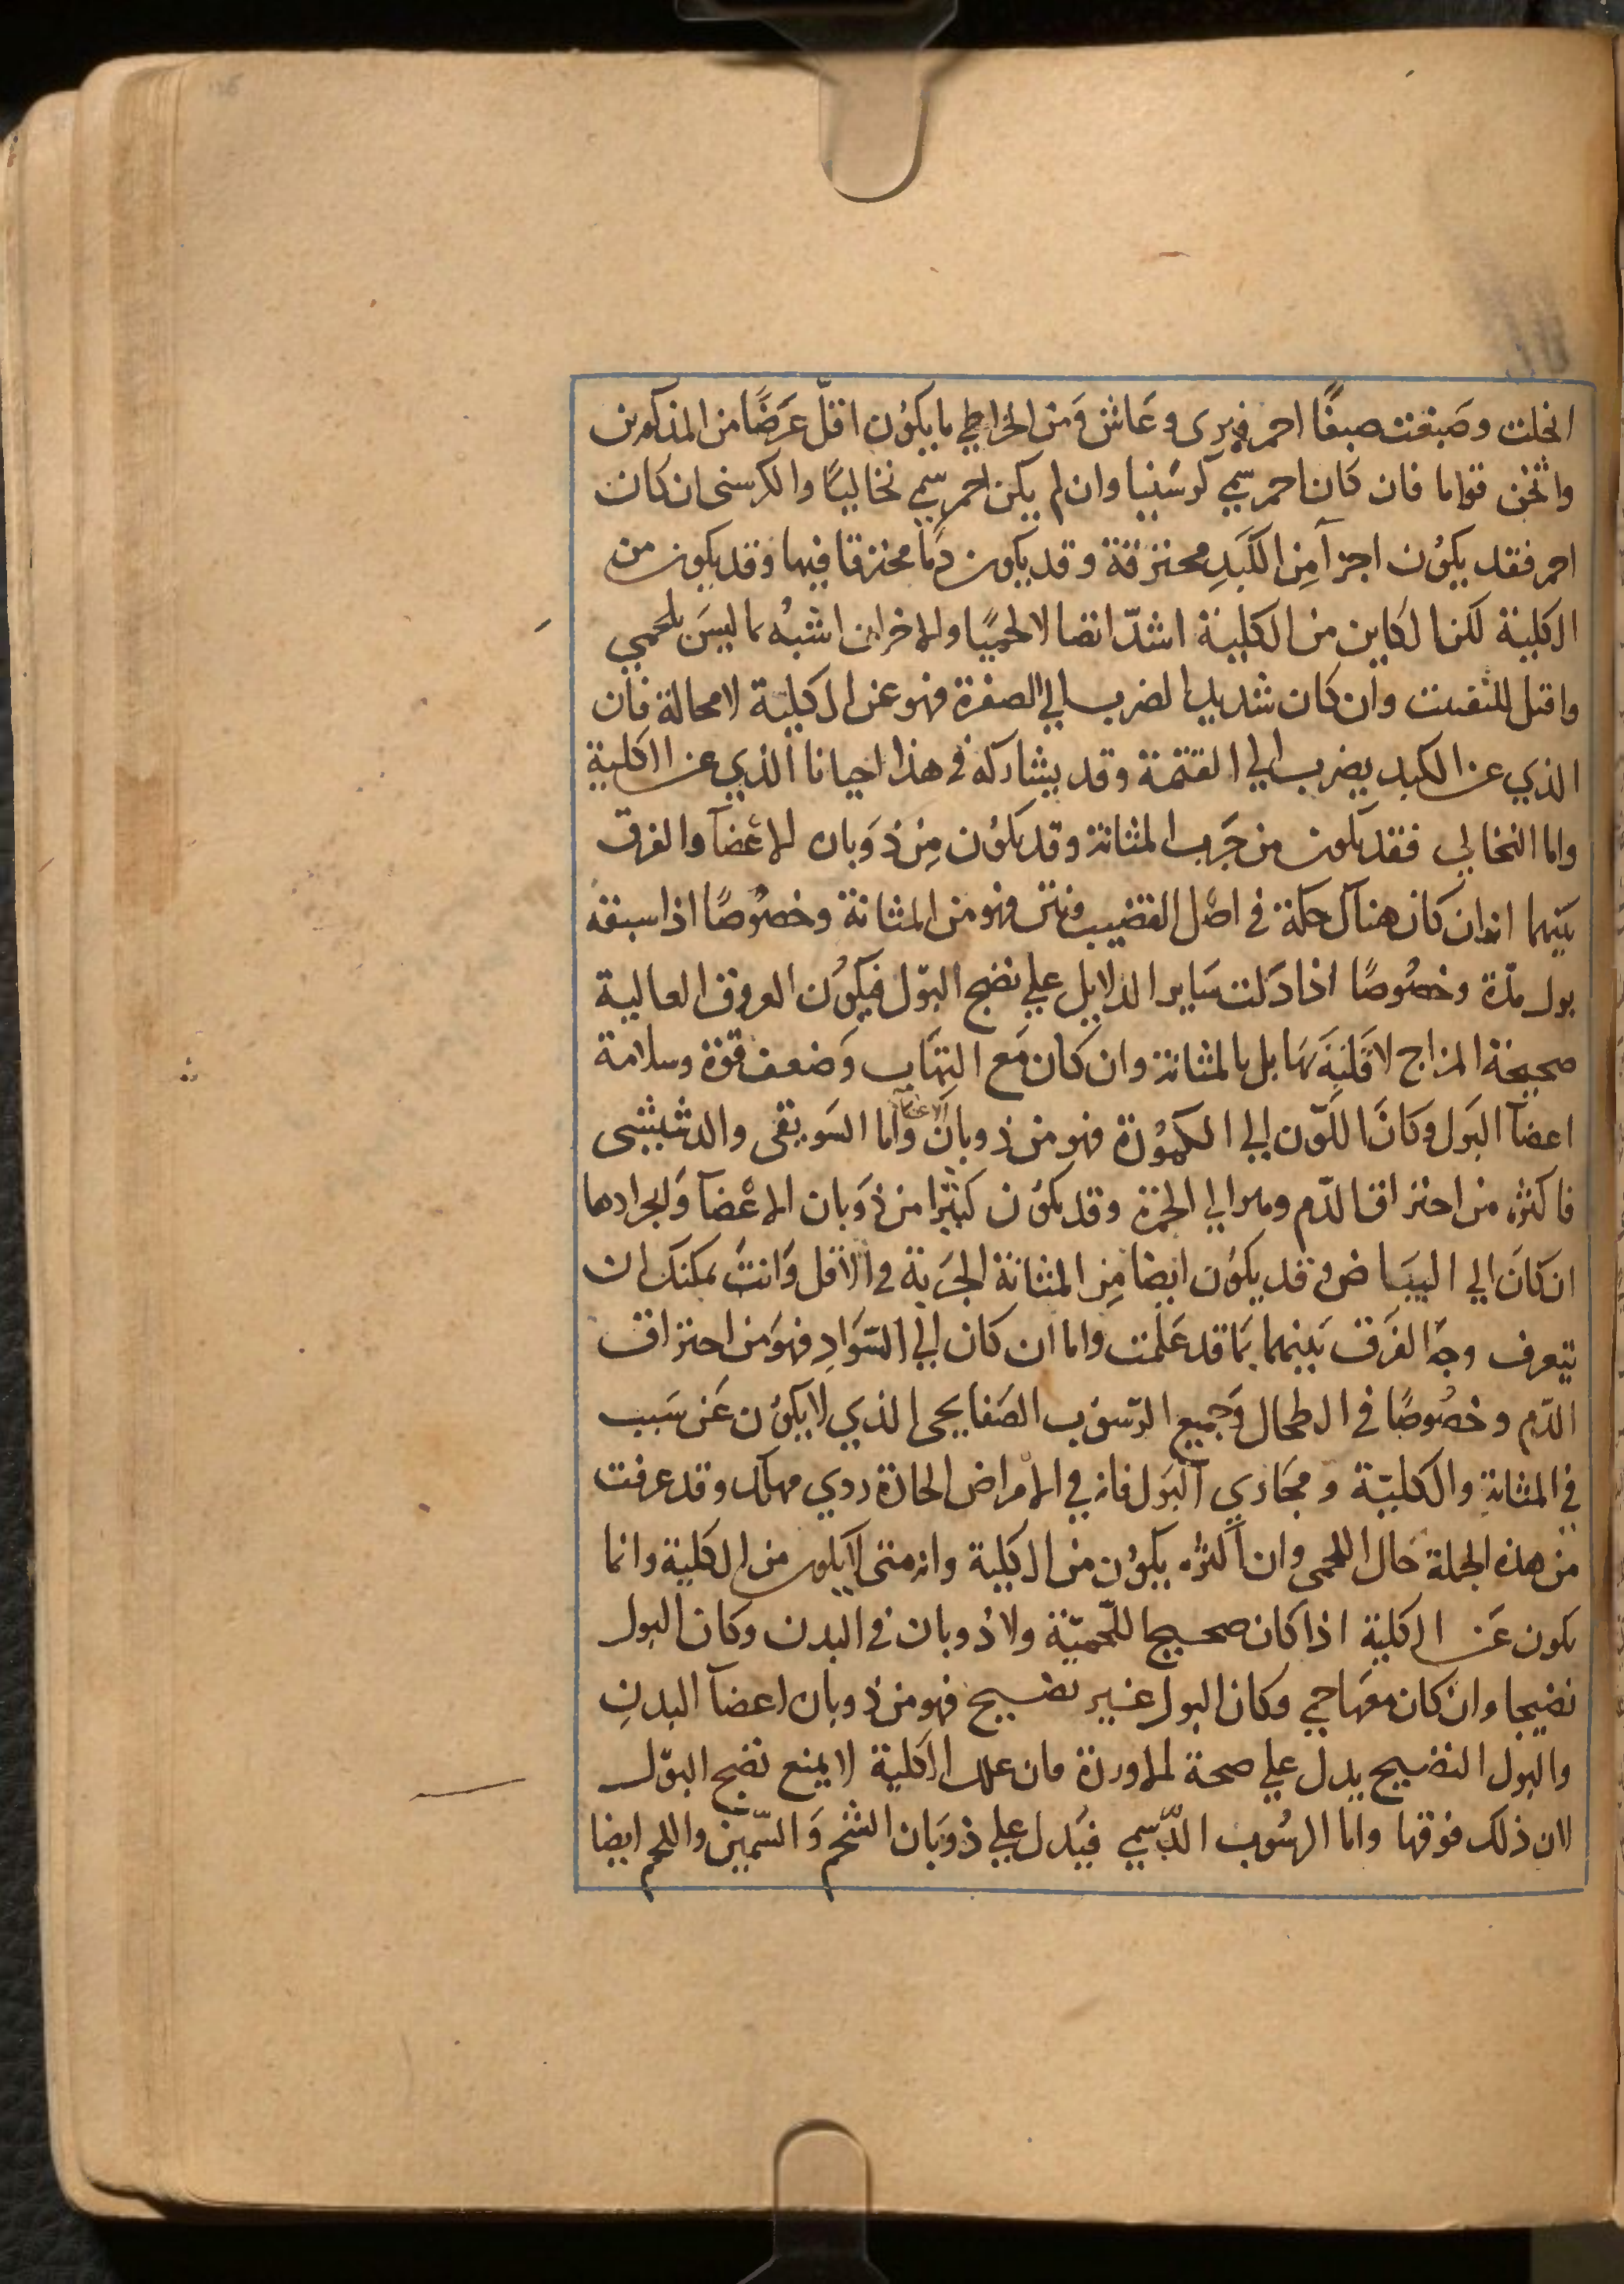 انحلت وصبغت صبغًا احمر فبرى وعاش ومن الخراطي ما يكون اقلّ عرضًا من المذكورين
واثخن قواما فان كان احمر سمي كرسنيا وان لم يكن احمر سمي نخاليًا والكرسنى ان كان
احمر فقد يكون اجزآ من الكبد محترقة وقد يكون دمًا محترقا فيها وقد يكون من
الكلية لكن الكاين من الكلية اشدّ اتصالا لحميًا والاخران اشبه بما ليس بلحمي
واقبل للتفتت وان كان شديد الضرب الي الصفرة فهو عن الكلية لا محالة فان
الذي عن الكبد يضرب الي القتمة وقد يشاركه في هذا احيانا الذي عن الكلية
واما النخالي فقد يكون من جرب المثانة وقد يكون من ذوبان الاعضآ والفرق
بينهما انه ان كان هناك حكة في اصل القضيب ونتن فهو من المثانة وخصوصًا اذا سبقه
بول مدّة وخصوصًا اذا دلت ساير الدلايل علي نضج البول فيكون العروق العالية
صحيحة المزاج لا قلبة بها بل بالمثانة وان كان مع التهاب وضعف قوة وسلامة
اعضآ البول وكان اللون الي الكمودة فهو من ذوبان الاعضآ واما السويقى والدشيشى
فاكثره من احتراق الدّم وميرا الي الحمرة وقد يكون كثيرًا من ذوبان الاعضآ وانجرادها
ان كان الي البياض وقد يكون ايضا من المثانة الجربة في الاقل وانت يمكنك ان
تتعرف وجه الفرق بينهما بما قد علمت واما ان كان الي السّواد فهو من احتراق
الدّم وخصوصًا في الطحال وجميع الرّسوب الصفايحى الذي لا يكون عن سبب
في المثانة والكلية ومجاري البول فانه في الامراض الحادة ردي مهلك وقد عرفت
من هذه الجملة حال اللحمى وان اكثره يكون من الكلية وانه متى لا يكون من الكلية وانما
يكون عن الكلية اذا كان صحيح اللحميّة ولا ذوبان في البدن وكان البول
نضيجا وان كان معها حمي وكان البول غير نضيج فهو من ذوبان اعضآ البدن
والبول النضيج يدل علي صحة الاوردة فان علل الكلية لا يمنع نضج البول
لان ذلك فوقها واما الرسوب الدّسمي فيدل علي ذوبان الشحم والسّمين واللحم ايضا